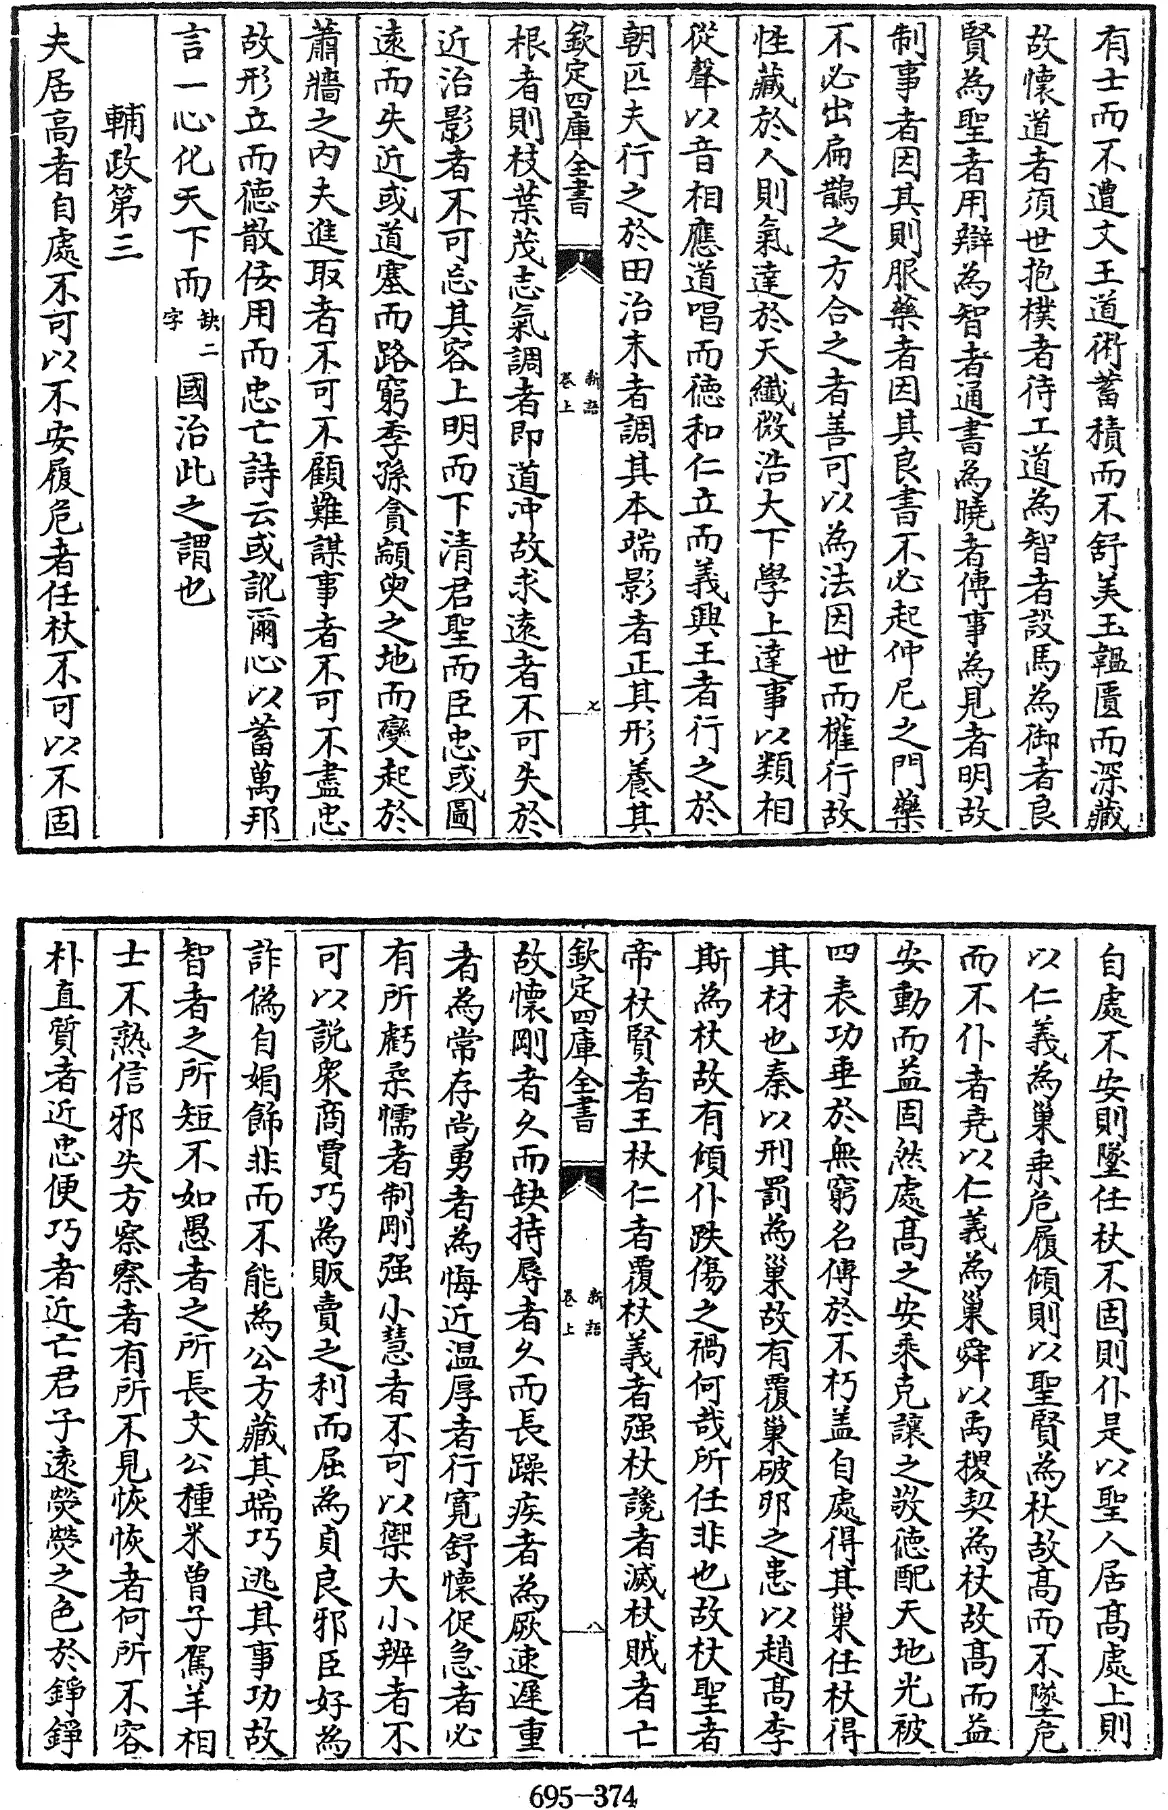 有士而不遭文王道術蓄積而不舒美玉韞匵而深藏
故懷道者須世抱樸者待工道為智者設馬為御者良
賢為聖者用辯為智者通書為曉者傳事為見者明故
制事者因其則服藥者因其良書不必起仲尼之門藥
不必出扁鵲之方合之者善可以為法因世而權行故
性藏於人則氣達於天纖微浩大下學上達事以類相
從聲以音相應道唱而德和仁立而義興王者行之於
朝匹夫行之於田治末者調其本端影者正其形養其
欽定四庫全書 新語卷上 七
根者則枝葉茂志氣調者即道冲故求遠者不可失於
近治影者不可忘其容上明而下清君聖而臣忠或圖
遠而失近或道塞而路窮季孫貪顓臾之地而變起於
蕭牆之内夫進取者不可不顧難謀事者不可不盡忠
故形立而德散佞用而忠亡詩云或訛爾心以蓄萬邦
言一心化天下而缺二字國治此之謂也
輔政第三
夫居高者自處不可以不安履危者任杖不可以不固
自處不安則墜任杖不固則仆是以聖人居高處上則
以仁義為巢乘危履傾則以聖賢為杖故高而不墜危
而不仆者堯以仁義為巢舜以禹稷契為杖故高而益
安動而益固然處高之安乘克讓之敬德配天地光被
四表功垂於無窮名傳於不朽盖自處得其巢任杖得
其材也秦以刑罰為巢故有覆巢破卵之患以趙高李
斯為杖故有傾仆跌傷之禍何哉所任非也故杖聖者
帝杖賢者王杖仁者覇杖義者强杖讒者滅杖賊者亡
欽定四庫全書 新語卷上 八
故懷剛者久而缺持辱者久而長躁疾者為厥速遲重
者為常存尚勇者為悔近温厚者行寛舒懷促急者必
有所虧柔懦者制剛强小慧者不可以禦大小辨者不
可以説衆商賈巧為販賣之利而屈為貞良邪臣好為
詐偽自媚飾非而不能為公方藏其端巧逃其事功故
智者之所短不如愚者之所長文公種米曾子駕羊相
士不熟信邪失方察察者有所不見恢恢者何所不容
朴直質者近忠便巧者近亡君子遠熒熒之色於錚錚
695-374